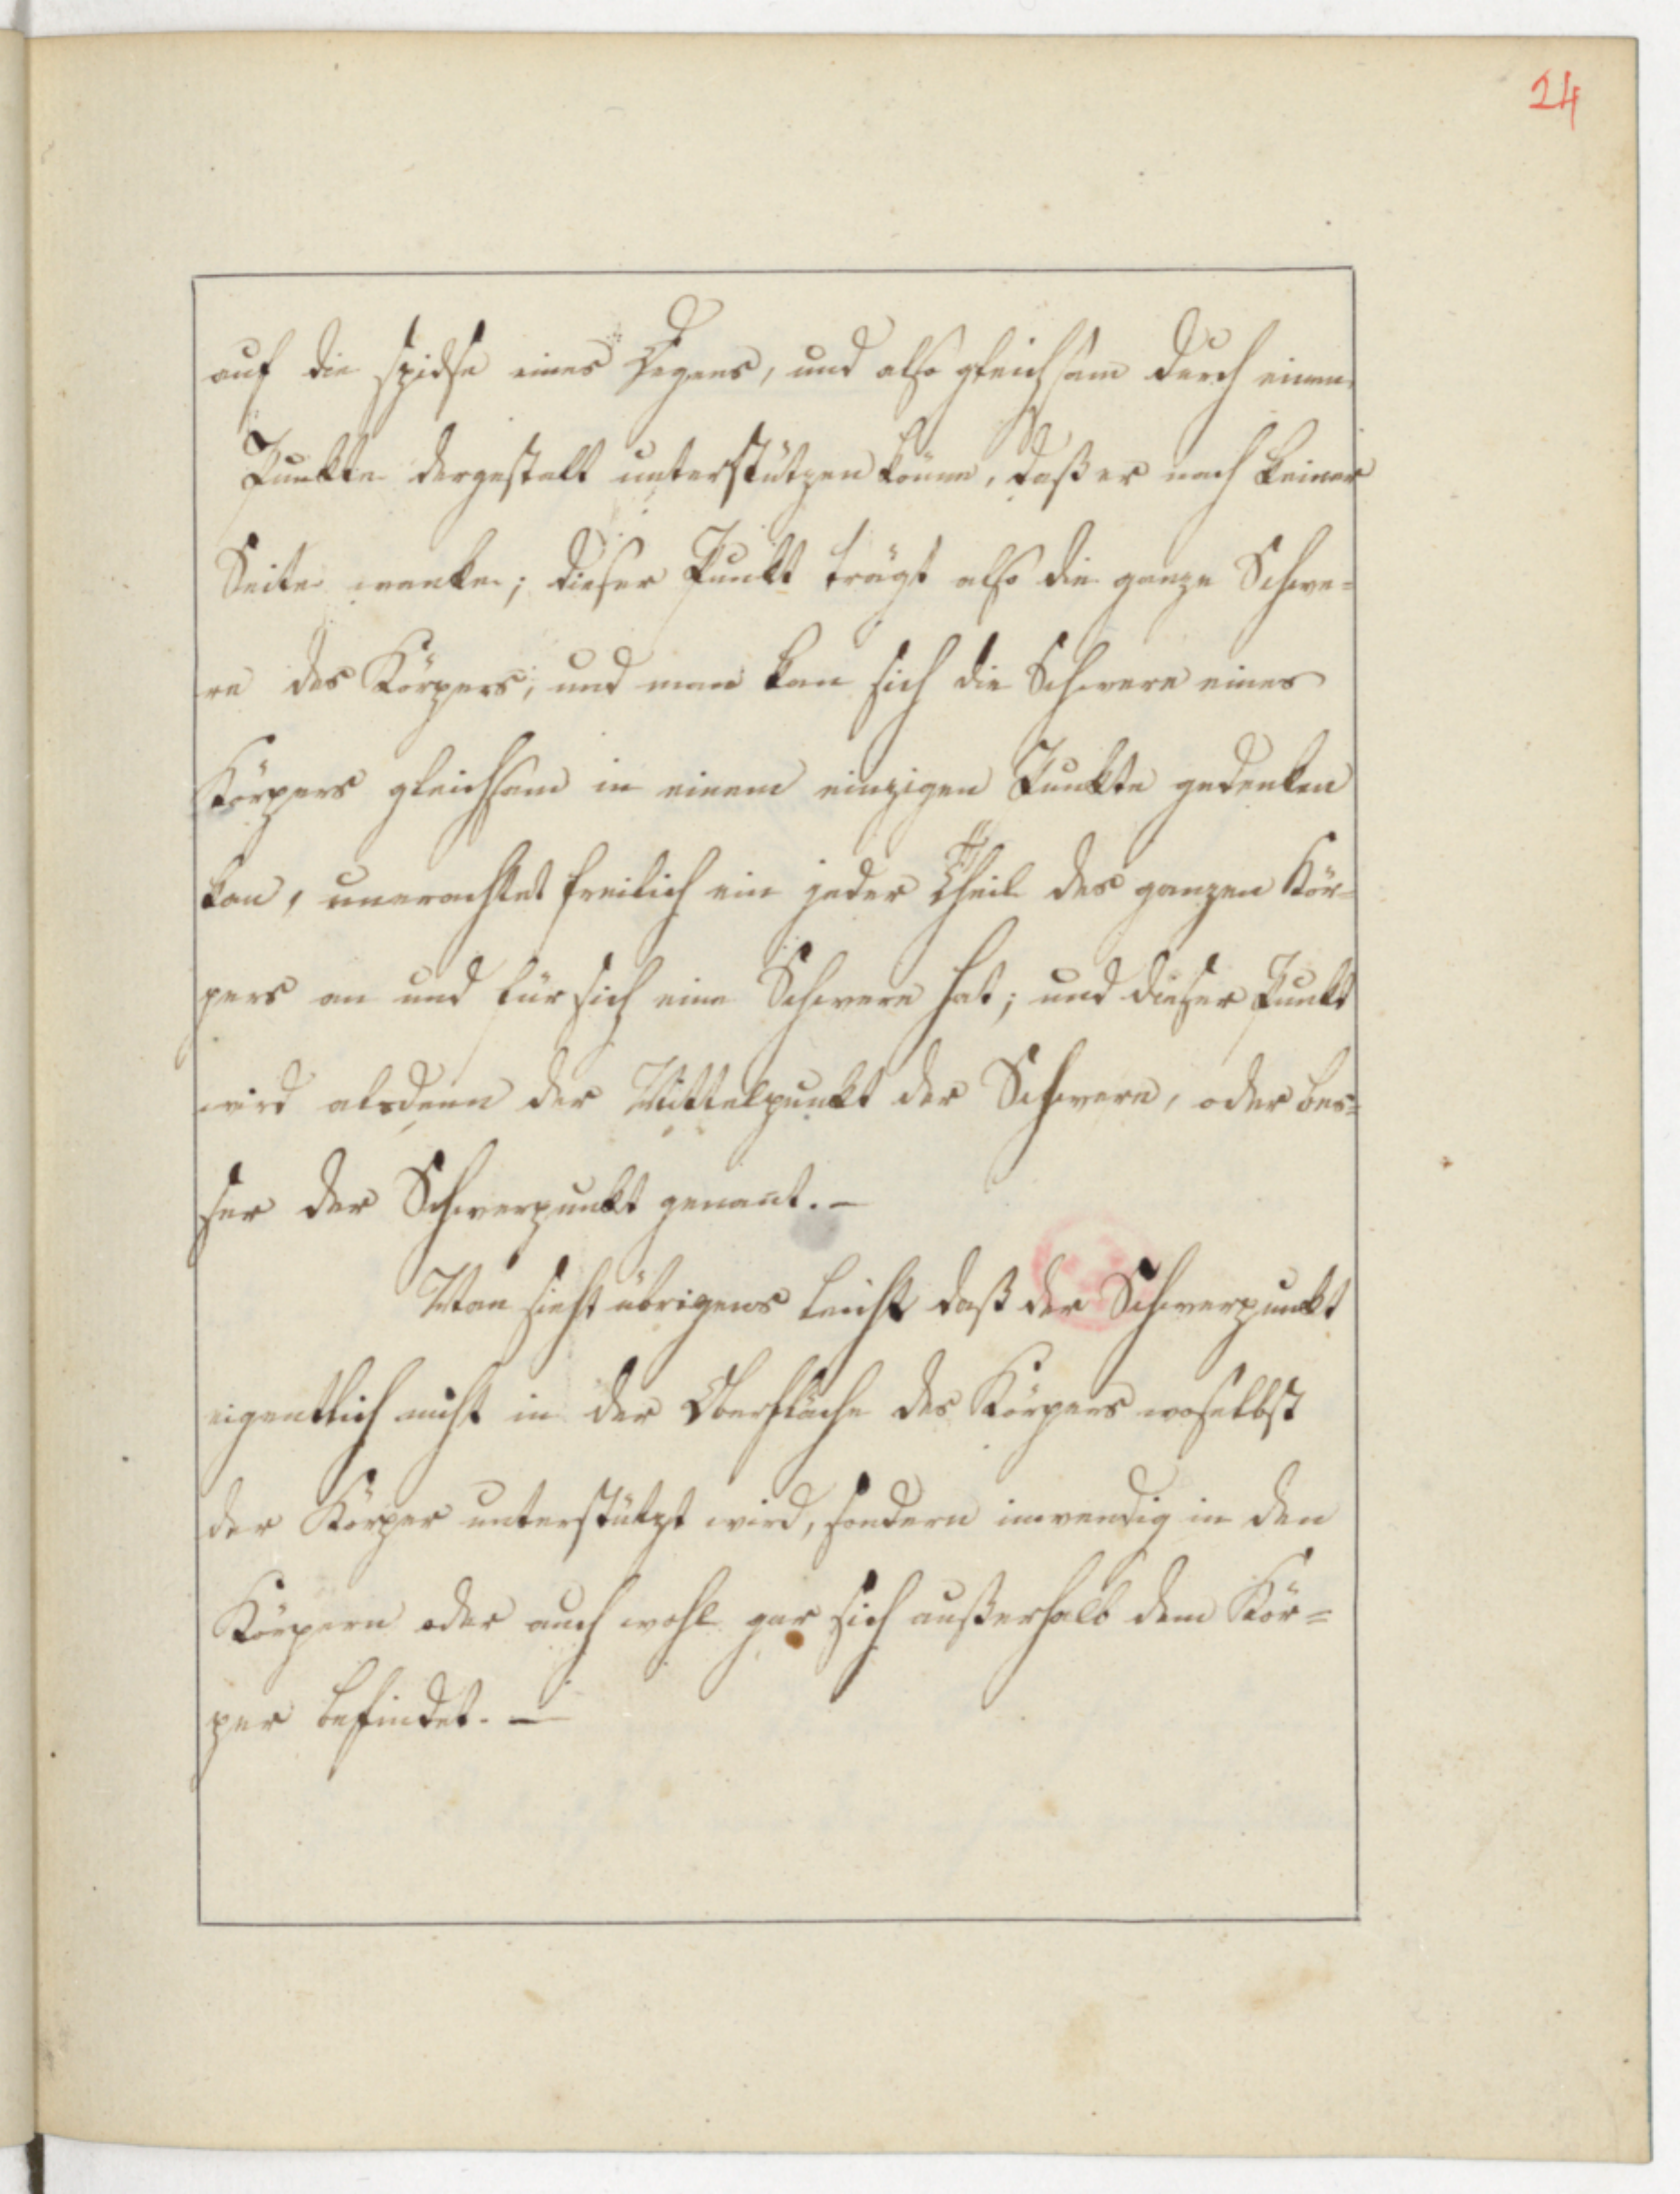 24
auf die spidse eines Degens, und also gleichsam durch einen
Punkte dergestalt unterstützen könne, daß er nach keiner
Seite wanke; dieser Punkt trägt also die ganze Schwe=
re des Körpers; und man kan sich die Schwere eines
Körpers gleichsam in einem einzigen Punkte gedenken
kan, unerachtet freilich ein jeder Theil des ganzen Kör=
pers an und für sich eine Schwere hat; und dieser Punkt
wird alsdenn der Mittelpunkt der Schwere, oder bes=
ser der Schwerpunkt genant. —
Man sieht übrigens leicht daß der Schwerpunkt
eigentlich nicht in der Oberfläche des Körpers woselbst
der Körper unterstützt wird, sondern inwendig in den
Körpern oder auch wohl gar sich außerhalb dem Kör=
per befindet. —